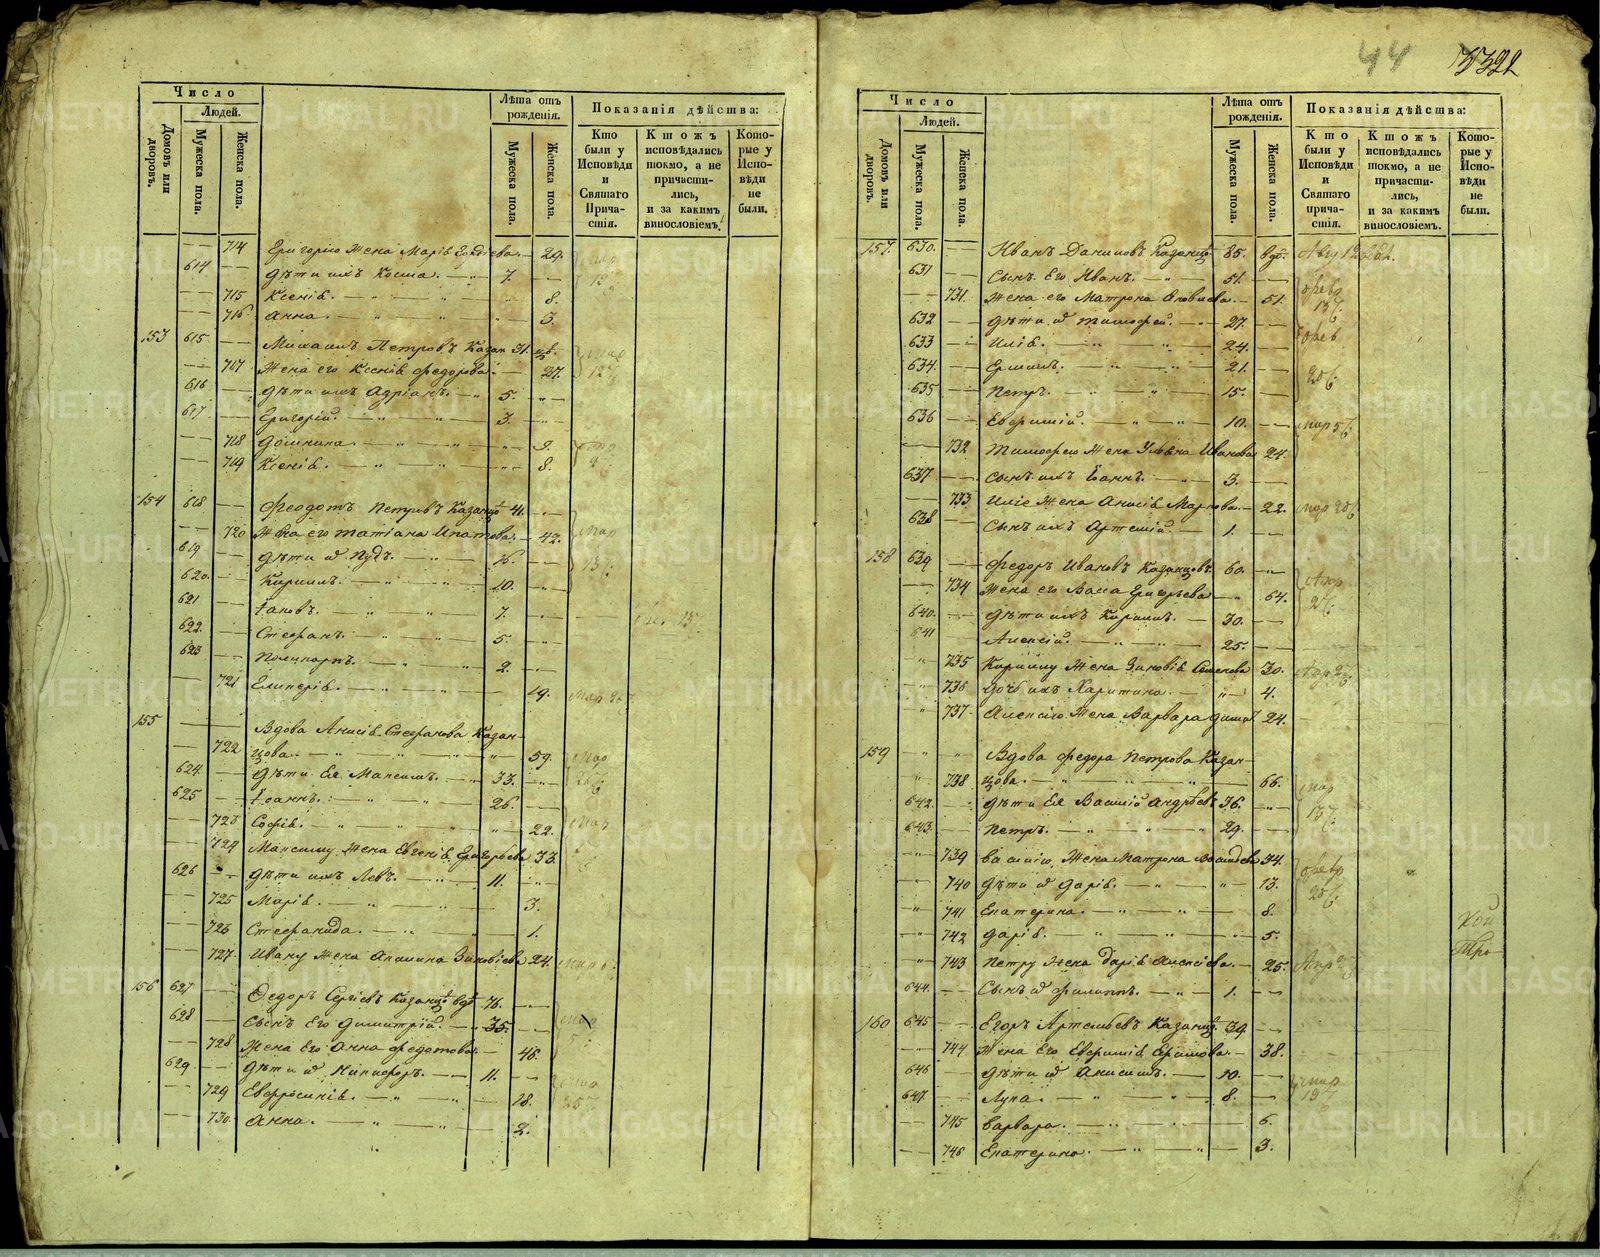 44 3322
Число
Людей.
Домовъ или дворовъ.
Мужеска пола.
Женска пола.
Лѣта отъ рожденія.
Мужеска пола.
Женска пола.
Показанія дѣйства:
Кто были у Исповѣди и Святаго Прича-стія.
Ктожъ исповѣдались токмо, а не причасти-лись, и за какимъ винословіемъ.
Кото-рые у Испо-вѣди не были.
714 Григорію жена Марія 29.
614 дѣти ихъ Косма. 7.
715 Ксенія. 8.
716 Анна. 3.
153 615 Михаилъ Петровъ Казан 31. цв.
717 Жена его Ксенія Федорова. 27.
616 дѣти ихъ Адріанъ. 5.
617 Григорій. 3.
718 Домника. 9.
719 Ксенія. 8.
154 618 Феодотъ Петровъ Казанцо 41.
720 Жена его Татіана Ипатова. 42.
619 дѣти и Пудъ. 16.
620. Кирилъ. 10.
621 Іаковъ. 7.
622. Стефанъ. 5.
623 Поликарпъ. 2.
721 Гликерія. 19.
155 Вдова Анисія Стефанова Казан-
722 цова. 59.
624. дѣти Ея Максимъ. 33.
625 Іоаннъ. 26.
723 Софія. 22.
724 Максиму жена Евгенія Григорьева 33.
626 дѣти ихъ Левъ. 11.
725 Марія. 3.
726 Стефанида. 1.
727. Ивану жена Акилина Зиновіева 24.
156 627 Федоръ Сергіевъ Казанцо вдв 76.
628 Сынъ Его Димитрій. 35.
728 Жена Его Анна Федотова. 46.
629 дѣти и Никифоръ. 11.
729 Евфросинія. 18.
730. Анна. 2.
Число
Людей.
Домовъ или дворовъ.
Мужеска пола.
Женска пола.
Лѣта отъ рожденія.
Мужеска пола.
Женска пола.
Показанія дѣйства:
Кто были у Исповѣди и Святаго прича-стія.
Ктожъ исповѣдались токмо, а не причасти-лись, и за какимъ винословіемъ.
Кото-рые у Испо-вѣди не были.
157. 630. Иванъ Даниловъ Казанцо 85. вдв.
631 Сынъ Его Иванъ. 51.
731. Жена его Матрона Яковлева. 51.
632 дѣти и Тимофей. 27.
633 Илія. 24.
634. Ермилъ. 21.
635 Петръ. 15.
636 Евфимій. 10.
732 Тимофею Жена Ульяна Иванова 24.
637 Сынъ ихъ Іоаннъ. 3.
733 Иліе Жена Анисія Маркова. 22.
638 Сынъ ихъ Артемій. 1.
158 639 Федоръ Ивановъ Казанцовъ. 60.
734 Жена его Васса Григорьева 64.
640. дѣти ихъ Кирилъ. 30.
641 Алексій. 25.
735 Кирилу Жена Зиновія Семенова 30.
736 Дочь ихъ Харитина. 4.
737 Алексію Жена Варвара 24.
159 Вдова Федора Петрова Казан-
738 цова. 66.
642. дѣти Ея Василій Андрѣевъ 36.
643. Петръ. 29.
739 Василію Жена Матрона 34.
740 дѣти и Дарія. 13.
741 Екатерина. 8.
742 Дарія. 5.
743 Петру Жена Дарія Алексіева. 25.
644. Сынъ и Филиппъ. 1.
160 645 Егоръ Артемьевъ Казанцо. 39.
744 Жена Его Евфимія Ермилова. 38.
646 дѣти и Анисимъ. 10.
647. Лука. 8.
745 Варвара. 6.
746 Екатерина. 3.